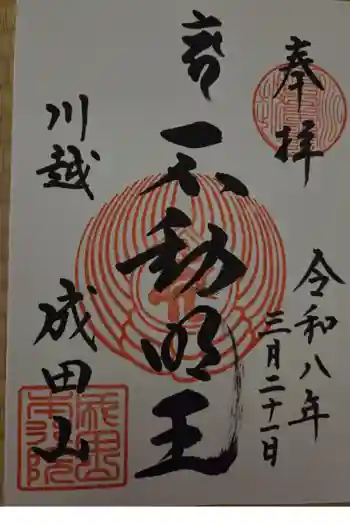 奉拝
令和八年
三月二十一日
不動明王
川越
成田山